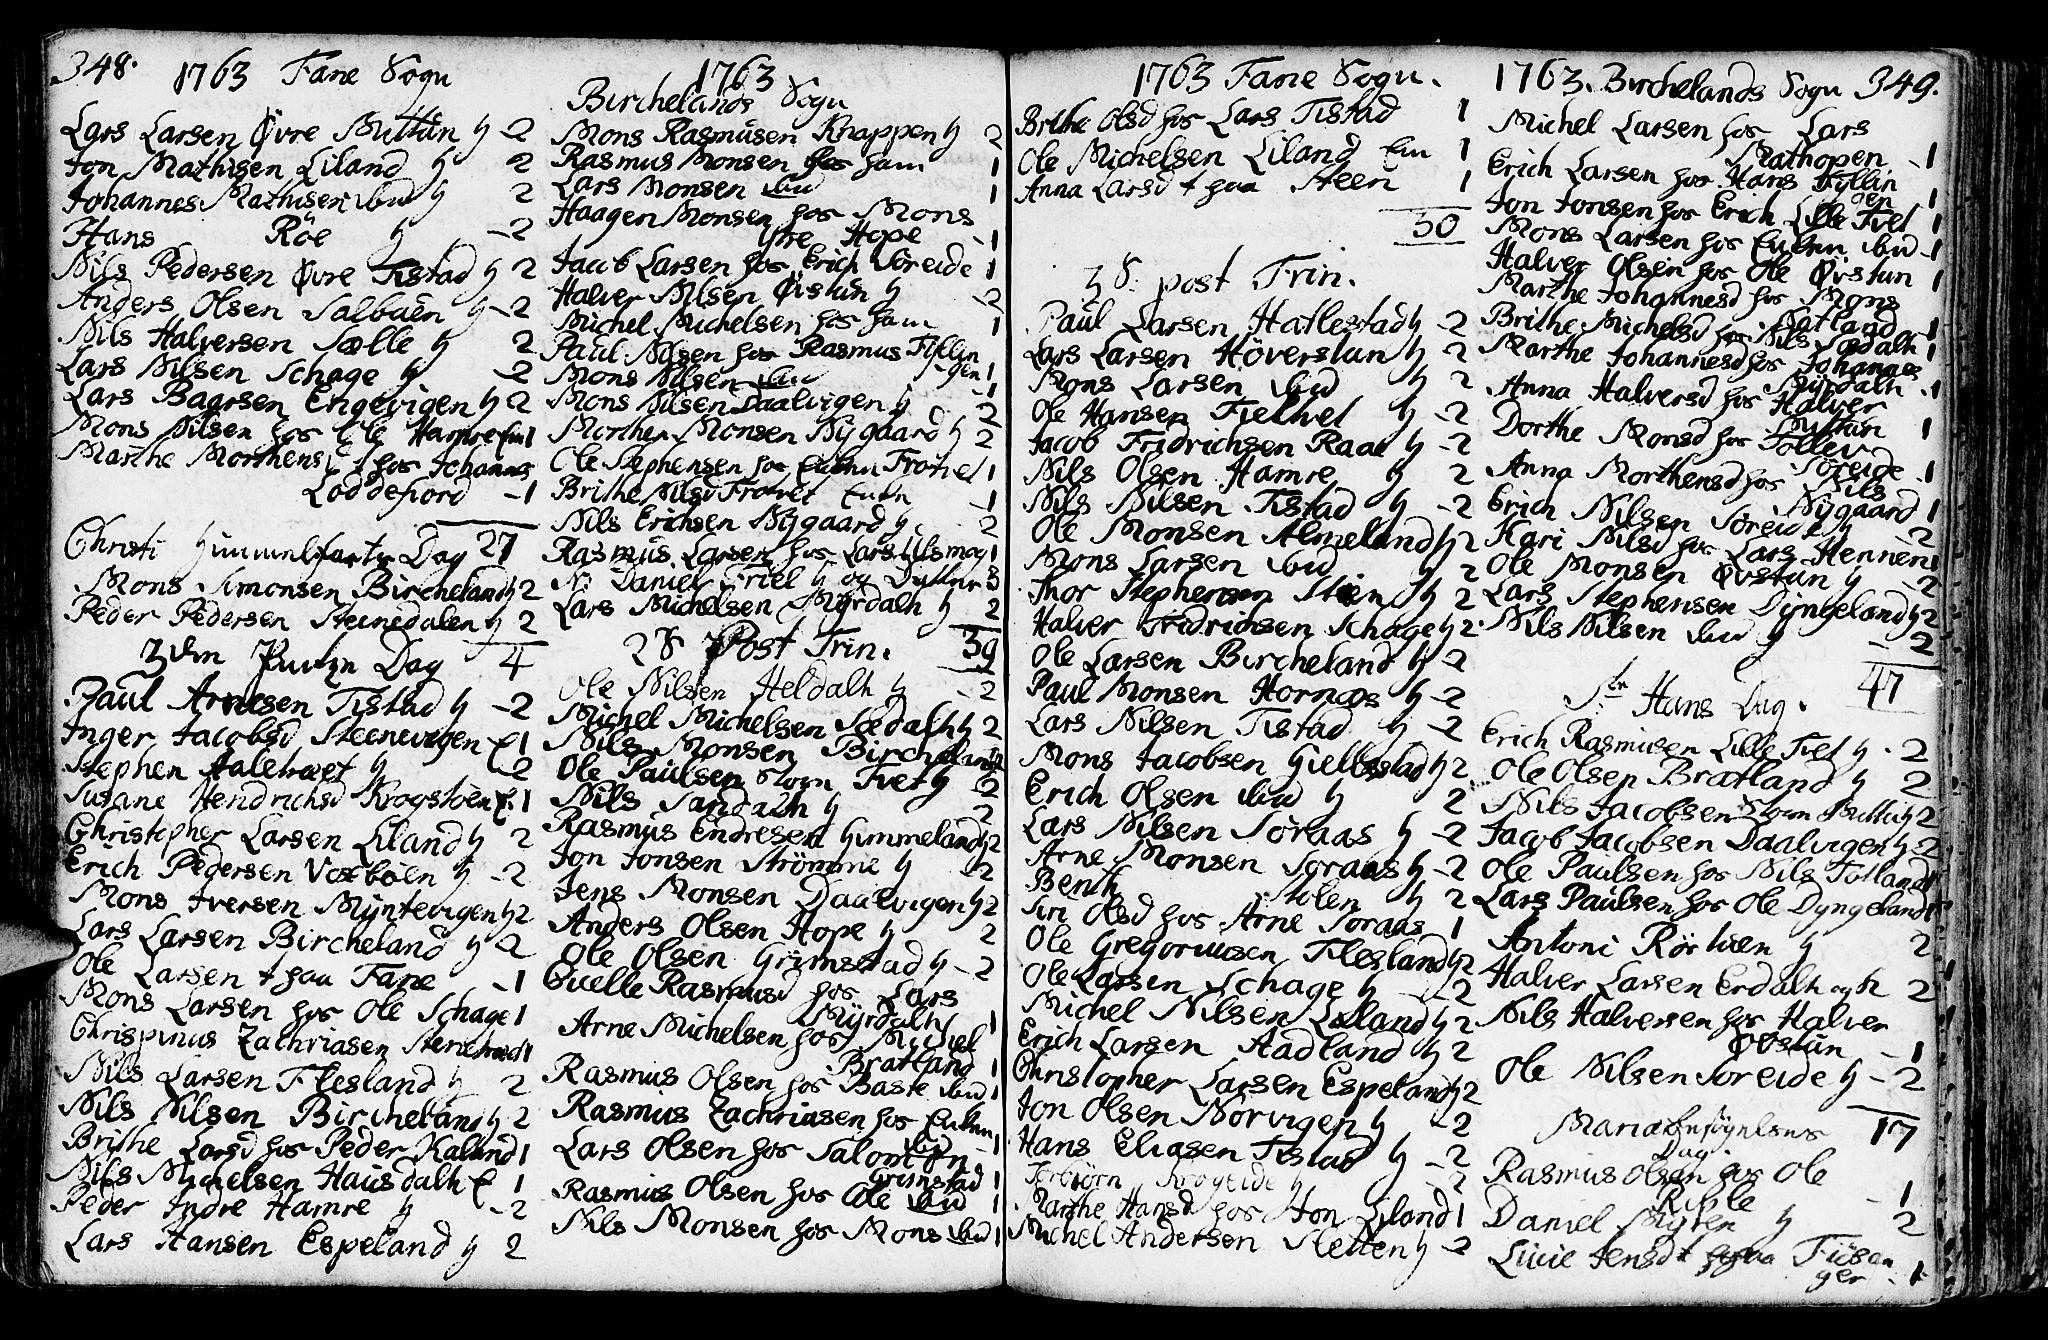 348. 1763 Fane Sogn
Lars Larsen Øvre Mittun h - 2
Jon Mathisen Liland h 2
Johannes Mathisen ibid h 2
Hans Røe h - 2
Nils Pedersen Øvre Tistad h 2
Anders Olsen Salbuen h - 2
Nils Halversen Sælle h 2
Lars Nilsen Schage h - 2
Lars Baarsen Engevigen h 2
Mons Nilsen hos Ole Hamre 1
Marthe Morthens hos Johannes
Loddefiord - 1
27
Christi Himmelfarts Dag
Mons Simonsen Bircheland h 2
Peder Pedersen Steenedalen h 2
4
3die Pintze Dag
Paul Arnesen Tistad h - 2
Inger Jacobsd Steenevigen E 1
Stephen Aalehvet h - 2
Susane Hendrichsd Krogstøen E. 1
Christopher Larsen Liland h 2
Erich Pedersen Voxboen h - 2
Mons Iversen Myntevigen h 2
Lars Larsen Bircheland h 2
Ole Larsen t paa Fane - 1
Mons Larsen hos Ole Schage 1
Chrispinus Zachriasen 1
Nils Larsen Flesland h 2
Nils Nilsen Bircheland h 2
Brithe Larsd hos Peder Kaland 1
Nils Michelsen Hausdalh E 1
Peder Indre Hamre h - 2
Lars Hansen Espeland h 2
1763
Birchelands Sogn
Mons Rasmusen Knappen h 2
Rasmus Monsen hos ham 1
Lars Monsen ibid 1
Haagen Monsen hos Mons
Ytre Hope - 1
Jacob Larsen hos Erich Søreide 1
Halver Nilsen Øvstun h - 2
Michel Michelsen hos ham 1
Paul Nilsen hos Rasmus Fyllin
gen 1
Mons Nilsen ibid - 1
Mons Nilsen Daalvigen h 2
Morthen Monsen Nygaard h 2
Ole Stephensen hos Enken 1
Brithe Nilsd Enken - 1
Nils Erichsen Nygaard h. 2
Rasmus Larsen hos Lars 1
Daniel Friel h og Datter 3
Lars Michelsen Myrdalh h 2
39
2 S Post Trin.
Ole Nilsen Heldalh h - 2
Michel Michelsen Sædalh h 2
Nils Monsen Bircheland
Ole Paulsen Stoer Tvet h 2
Nils Sandalh h 2
Rasmus Endresen Himmeland h 2
Jon Jonsen Strømme h 2
Jens Monsen Daalvigen h 2
Anders Olsen Hope h 2
Ole Olsen Grimstad h - 2
Guelle Rasmusd hos Lars
Myrdalh 1
Arne Michelsen hos Michel
Bratland 1
Rasmus Olsen hos Baste ibid 1
Rasmus Zachriasen hos Enken
ibid 1
Lars Olsen hos Salomon
Grimstad 1
Rasmus Olsen hos Ole ibid 1
Nils Monsen hos Mons ibid 1
1763 Fane Sogn.
Brithe Olsd hos Lars Tistad 1
Ole Michelsen Liland Em 1
Anna Larsd t paa Steen 1
30
3 S. post Trin.
Paul Larsen Hatlestad h - 2
Lars Larsen Høverstun h 2
Mons Larsen ibid h 2
Ole Hansen Tvethvet h - 2
Jacob Fridrichsen Raae h - 2
Nils Olsen Hamre h 2
Nils Nilsen Tistad h - 2
Ole Monsen Almeland h 2
Mons Larsen ibid h 2
Thor Stephensen Steen h 2
Halver Fridrichsen Schage h 2
Ole Larsen Bircheland h 2
Paul Monsen Hornæs h - 2
Lars Nilsen Tistad h - 2
Mons Jacobsen Giellestad h 2
Erich Olsen ibid h 2
Lars Nilsen Søraas h - 2
Arne Monsen Soraas h - 2
Benth Stolen h 2
Siri Olsd hos Arne Soraas 1
Ole Gregoriusen Flesland h 2
Ole Larsen Schage h - 2
Michel Nilsen Liland h 2
Erich Larsen Aadland h 2
Christopher Larsen Espeland h 2
Jon Olsen Norvigen h - 2
Hans Eliasen Tistad h - 2
Torbiørn Krogeide h - 2
Marthe Hansd hos Jon Liland 1
Michel Andersen Sletten h - 2
1763. Birchelands Sogn 349.
Michel Larsen hos Lars
Mathopen - 1
Erich Larsen hos Hans Fyllin
gen 1
Jon Jonsen hos Erich Lille Tvet 1
Mons Larsen hos Enken ibid - 1
Halver Olsen hos Ole Øvstun 1
Marthe Johannesd hos Mons
Satland - 1
Brithe Michelsd hos Nils Sædalh 1
Marthe Johannesd hos Johannes
Myrdalh - 1
Anna Halversd hos Halver
Mittun 1
Dorthe Monsd hos Tollev
Søreide - 1
Anna Morthensd hos Nils
Nygaard 1
Erich Nilsen Søreide h - 2
Kari Nilsd hos Lars Hennen 1
Ole Monsen Øvstun h - 2
Lars Stephensen Dyngeland h 2
Nils Nilsen ibid h - 2
47
Ste Hans Dag.
Erich Rasmusen Lille Tvet h - 2
Ole Olsen Bratland h 2
Nils Jacobsen Stoere Mittun h 2
Jacob Jacobsen Daalvigen h 2
Ole Paulsen hos Nils Totland 1
Lars Paulsen hos Ole Dyngeland 1
Antoni Rørtven h 2
Halver Larsen Erdalh og h 2
Nils Halversen hos Halver
Øvstun - 1
Ole Nilsen Søreide h - 2
17
Mariæ Besøgelses
Dag
Rasmus Olsen hos Ole
- 1
Daniel Myren h 2
Livie Jensd t paa Tiösen
ger - 1